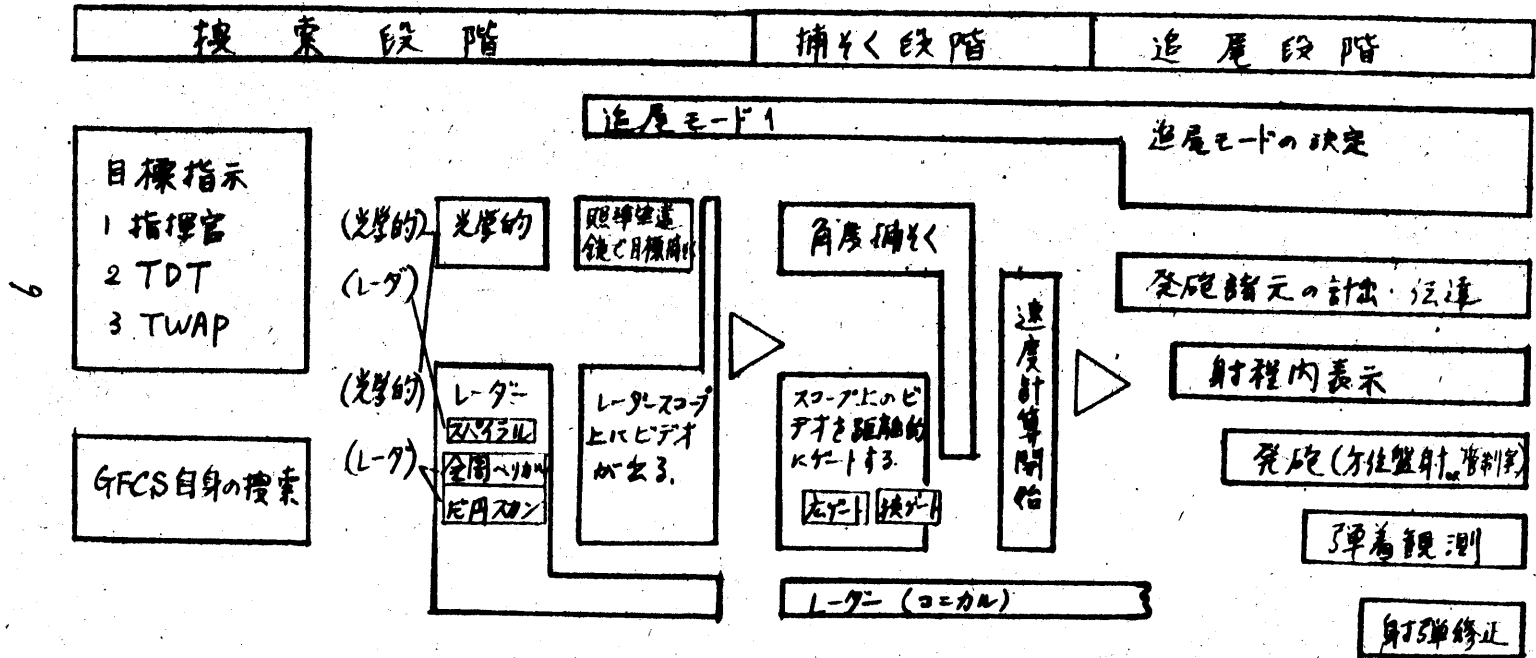 捜索段階
捕そく段階
追尾段階
追尾モード1
追尾モードの決定
目標指示
1 指揮官
2 TDT
3 TWAP
GFCS自身の捜索
(光学的)
(レーダ)
(光学的)
(レーダ)
光学的
レーダー
スパイラル
全周ヘリカル
楕円スカン
照準望遠
鏡で目標
レーダースコープ
上にビデオ
が出る。
角度捕そく
スコープ上のビ
デオを距離的
にゲートする。
広ゲート
狭ゲート
速度計算開始
レーダー (コニカル)
発砲諸元の計出・伝達
射程内表示
発砲(方位盤射
弾着観測
射弾修正
6